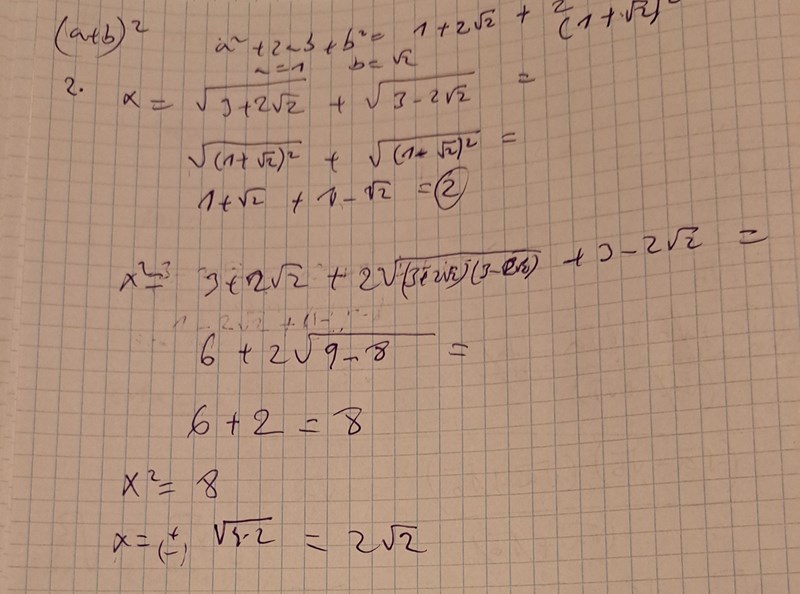 (a+b)² a²+2ab+b² = 1+2√2 + 2
(1+√2)²
a=1 b=√2
2. x = √(3+2√2) + √(3-2√2) =
√((1+√2)²) + √((1-√2)²) =
1+√2 + 1-√2 = 2
x² = 3+2√2 + 2√((3+2√2)(3-2√2)) + 3-2√2 =
6 + 2√(9-8) =
6+2 = 8
x² = 8
x = (±) √(4·2) = 2√2